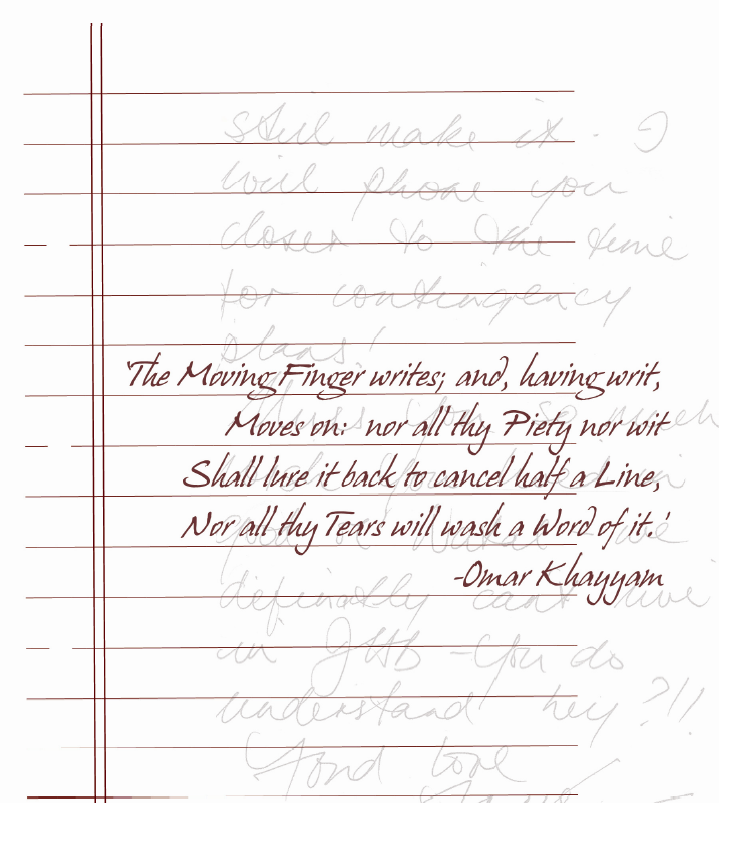 still make it - I
will phone you
closer to the time
for contingency
plans!
'The Moving Finger writes; and, having writ,
Moves on: nor all thy Piety nor wit
Shall lure it back to cancel half a Line,
Nor all thy Tears will wash a Word of it.'
-Omar Khayyam
definately can't live
in JHB - You do
understand hey?!!
Fond love